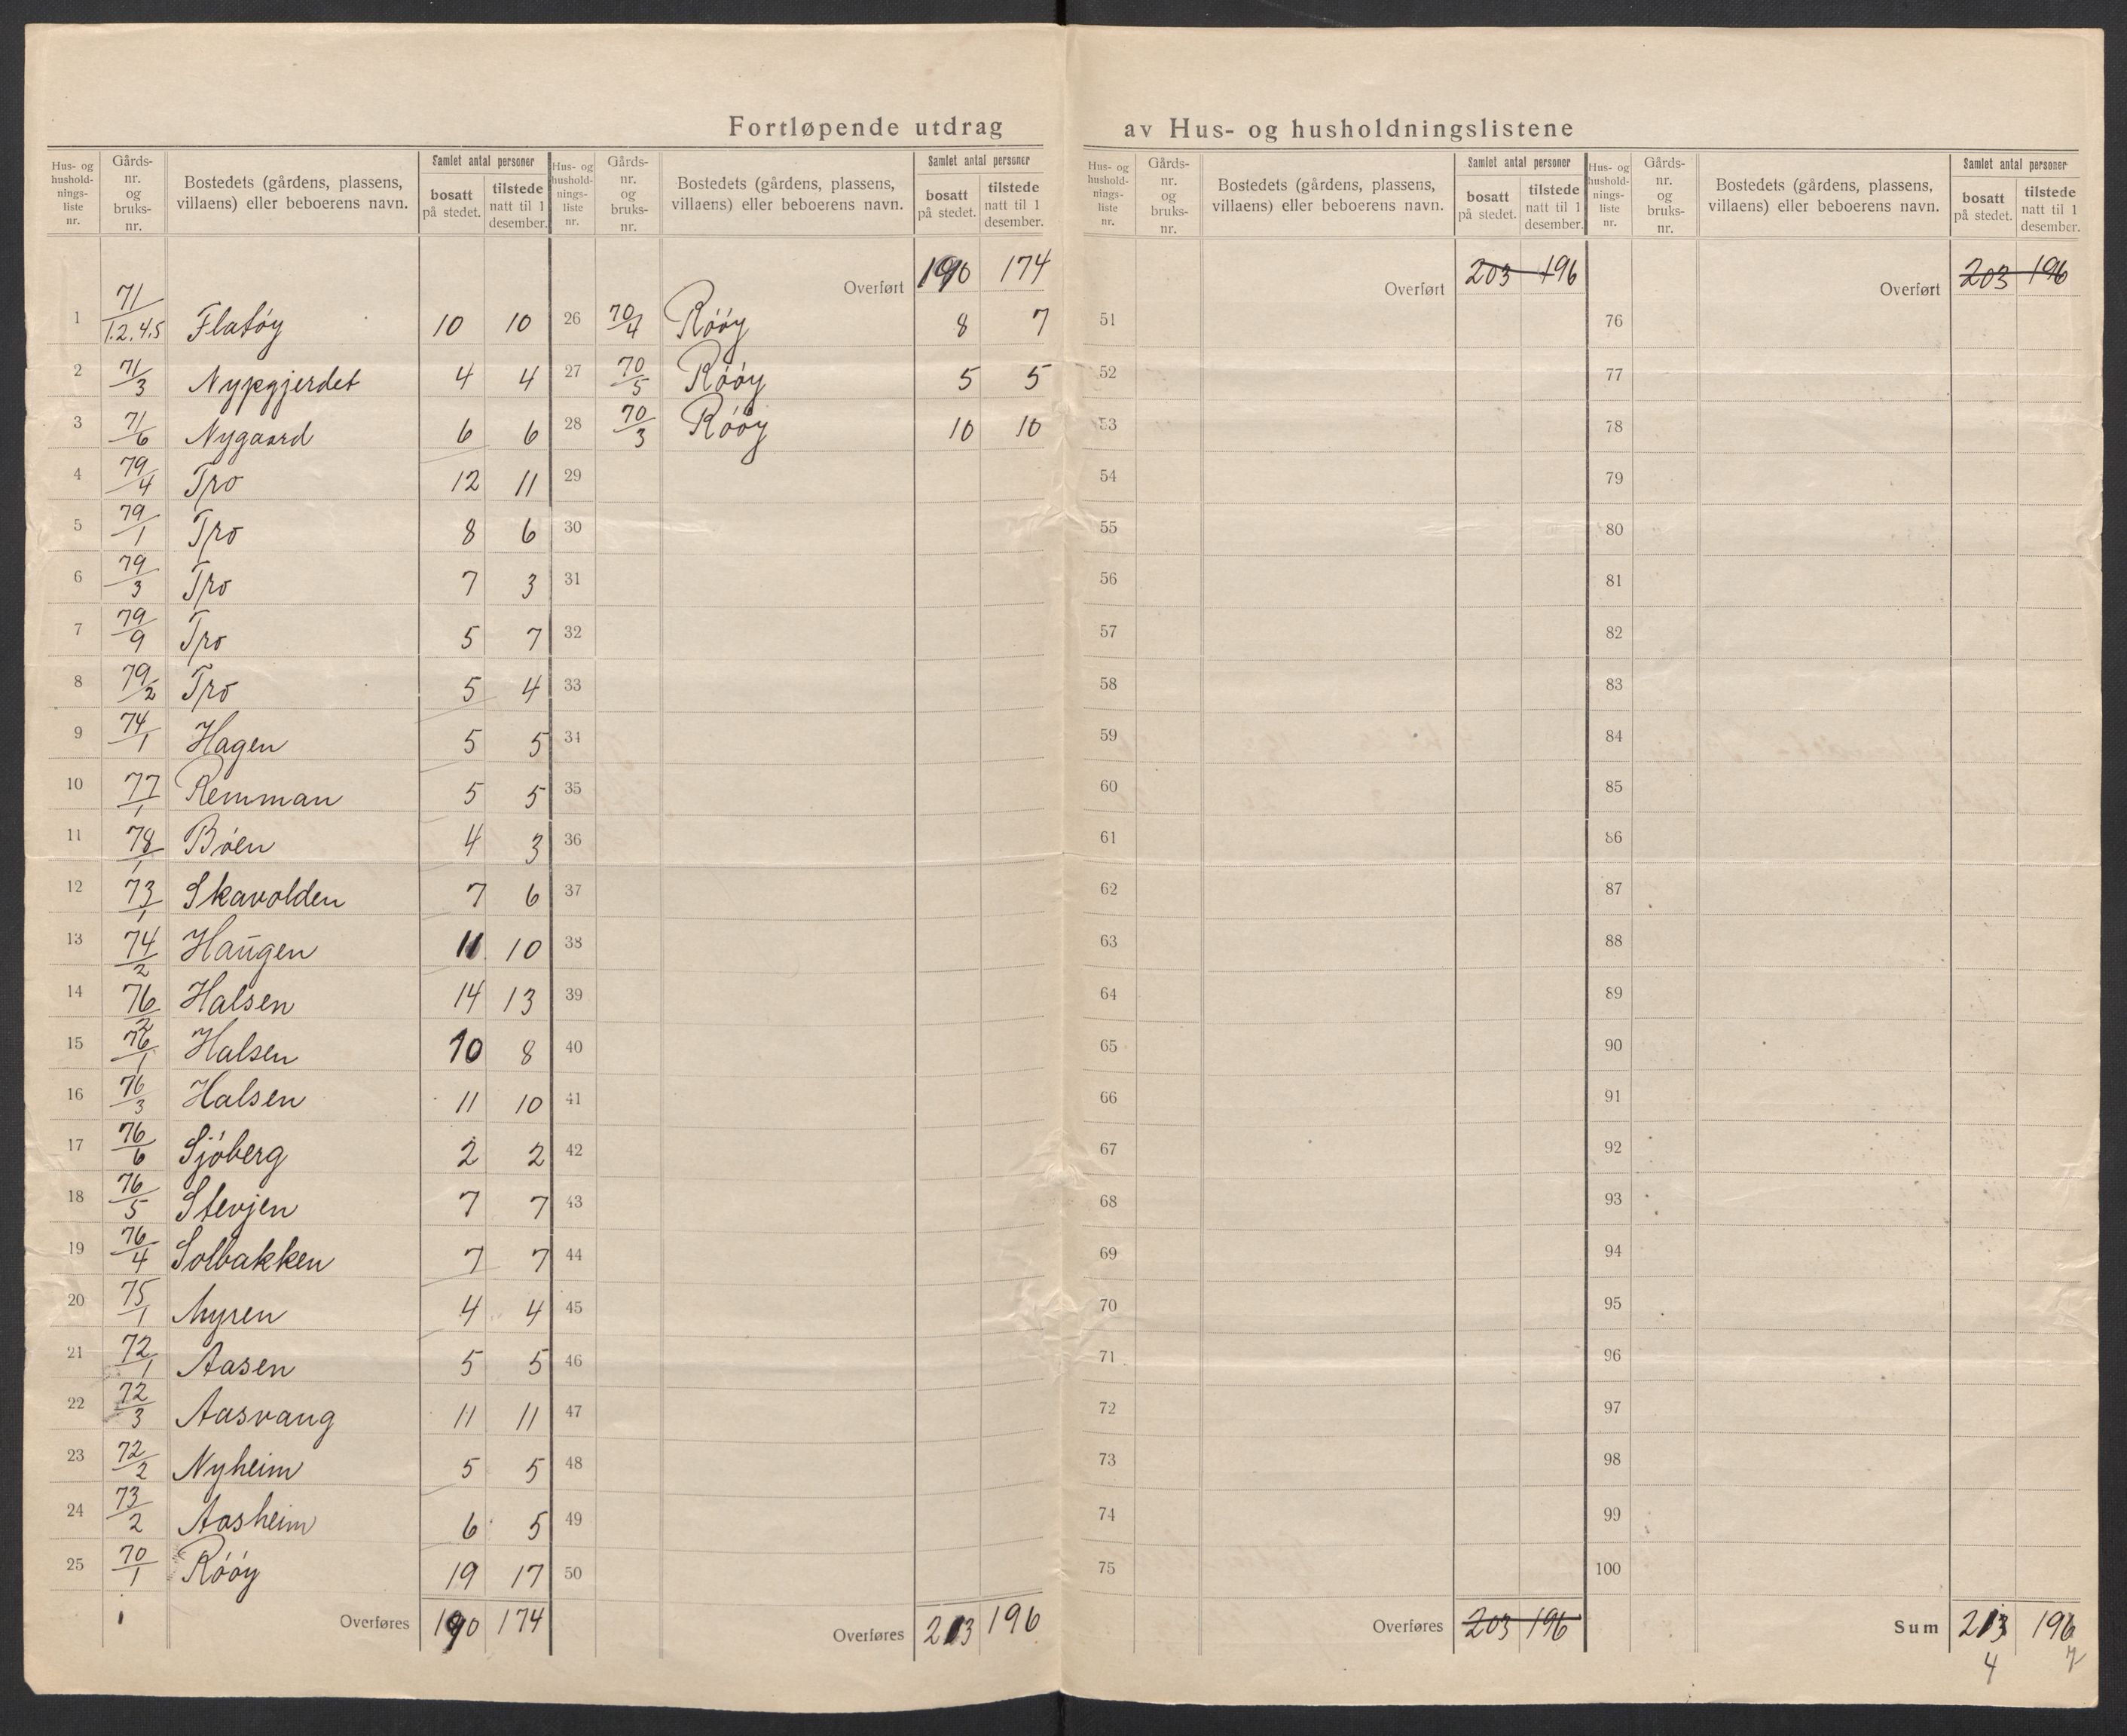 Fortløpende utdrag av Hus- og husholdningslistene
Hus- og hushold-nings-liste nr. | Gårds-nr. og bruks-nr. | Bostedets (gårdens, plassens, villaens) eller beboerens navn. | Samlet antal personer | bosatt på stedet. | tilstede natt til 1 desember.
1 71/1.2.4.5 Flatøy 10 10
2 71/3 Nypgjerdet 4 4
3 71/6 Nygaard 6 6
4 79/4 Tro 12 11
5 79/1 Tro 8 6
6 79/3 Tro 7 3
7 79/9 Tro 5 7
8 79/2 Tro 5 4
9 74/1 Hagen 5 5
10 77/1 Remman 5 5
11 78/1 Bøen 4 3
12 73/1 Skavolden 7 6
13 74/2 Haugen 11 10
14 76/2 Halsen 14 13
15 76/1 Halsen 10 8
16 76/3 Halsen 11 10
17 76/6 Sjöberg 2 2
18 76/5 Stevjen 7 7
19 76/4 Solbakken 7 7
20 75/1 Myren 4 4
21 72/1 Aasen 5 5
22 72/3 Aasvang 11 11
23 72/2 Nyheim 5 5
24 73/2 Aasheim 6 5
25 70/1 Røöy 19 17
Overføres 190 174
Hus- og hushold-nings-liste nr. | Gårds-nr. og bruks-nr. | Bostedets (gårdens, plassens, villaens) eller beboerens navn. | Samlet antal personer | bosatt på stedet. | tilstede natt til 1 desember.
Overført 190 174
26 70/4 Røöy 8 7
27 70/5 Røöy 5 5
28 70/3 Røöy 10 10
29
30
31
32
33
34
35
36
37
38
39
40
41
42
43
44
45
46
47
48
49
50
Overføres 213 196
Hus- og hushold-nings-liste nr. | Gårds-nr. og bruks-nr. | Bostedets (gårdens, plassens, villaens) eller beboerens navn. | Samlet antal personer | bosatt på stedet. | tilstede natt til 1 desember.
Overført 203 196
51
52
53
54
55
56
57
58
59
60
61
62
63
64
65
66
67
68
69
70
71
72
73
74
75
Overføres 203 196
Hus- og hushold-nings-liste nr. | Gårds-nr. og bruks-nr. | Bostedets (gårdens, plassens, villaens) eller beboerens navn. | Samlet antal personer | bosatt på stedet. | tilstede natt til 1 desember.
Overført 203 196
76
77
78
79
80
81
82
83
84
85
86
87
88
89
90
91
92
93
94
95
96
97
98
99
100
Sum 213 196
4 7